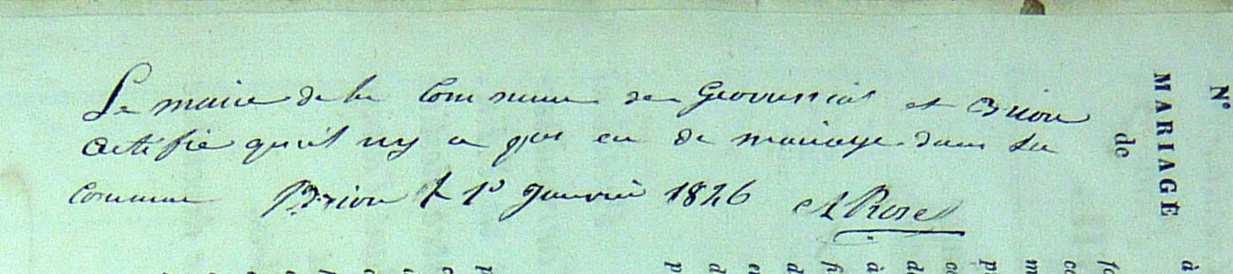 Le maire de la Commune de Geovressiat et Brion
Certifie qu'il ny a pas eu de mariage dans la
Commune Brion le 1er Janvier 1826
N°
MARIAGE
de